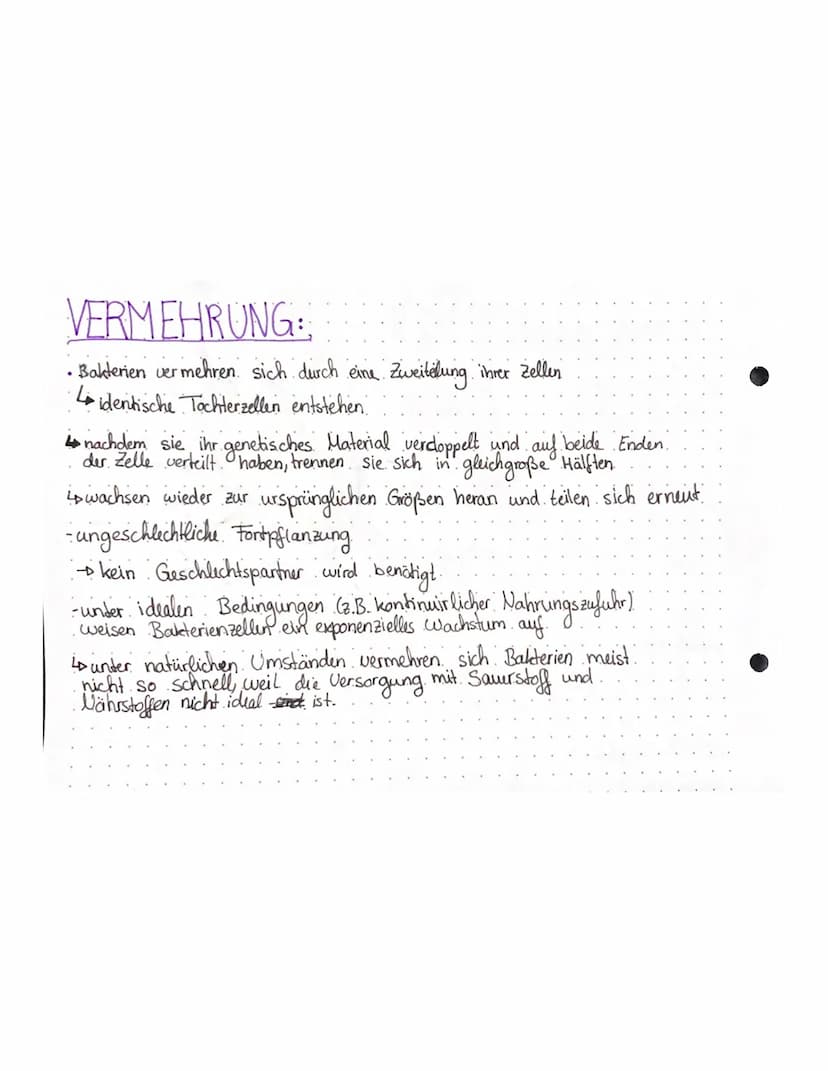 VERMEHRUNG:
• Bakterien vermehren sich durch eine Zweiteilung ihrer Zellen
↳ identische Tochterzellen entstehen
↳ nachdem sie ihr genetisches Material verdoppelt und auf beide Enden
der Zelle verteilt haben, trennen sie sich in gleichgroße Hälften
↳ wachsen wieder zur ursprünglichen Größen heran und teilen sich erneut
- ungeschlechtliche Fortpflanzung
→ kein Geschlechtspartner wird benötigt
- unter idealen Bedingungen (z.B. kontinuirlicher Nahrungszufuhr)
weisen Bakterienzellen ein exponenzielles Wachstum auf
↳ unter natürlichen Umständen vermehren sich Bakterien meist
nicht so schnell, weil die Versorgung mit Sauerstoff und
Nährstoffen nicht ideal ist.